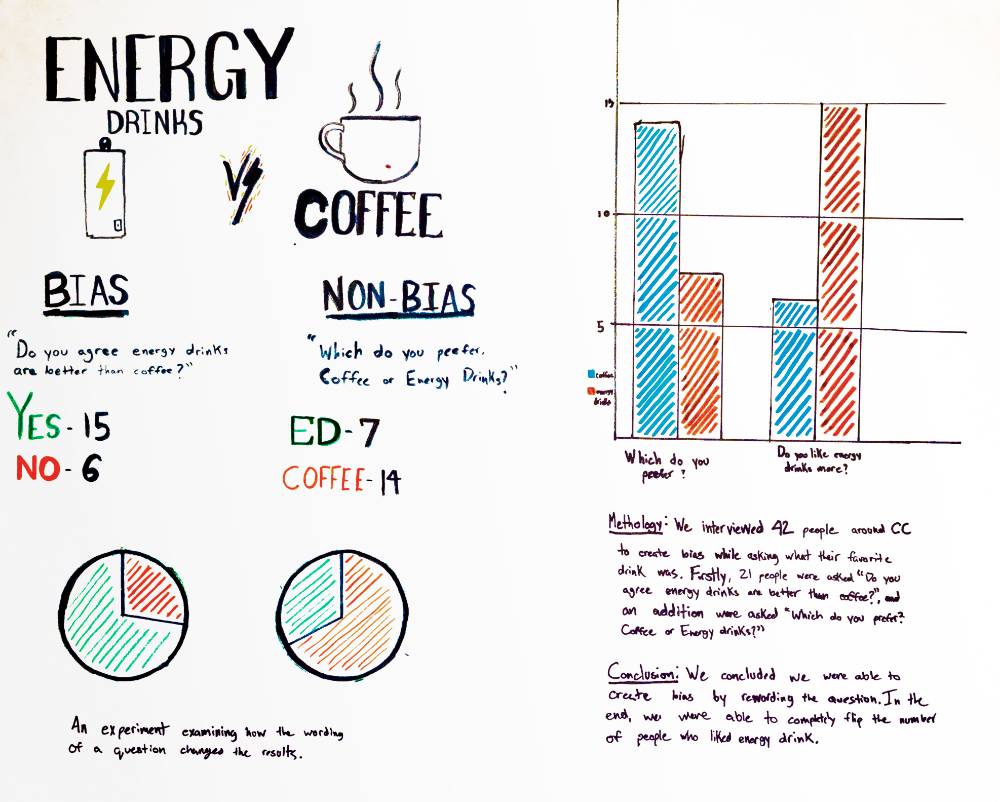 ENERGY
DRINKS
VS
COFFEE
BIAS
"Do you agree energy drinks
are better than coffee?"
YES - 15
NO - 6
NON-BIAS
"Which do you peefer.
Coffee or Energy Drinks?"
ED - 7
COFFEE - 14
An experiment examining how the wording
of a question changes the results.
15
10
5
coffee
energy
drinks
Which do you
peefer ?
Do you like energy
drinks more?
Methology: We interviewed 42 people around CC
to create bias while asking what their favorite
drink was. Firstly, 21 people were asked "Do you
agree energy drinks are better than coffee?", and
an addition were asked "Which do you prefer?
Coffee or Energy drinks?"
Conclusion: We concluded we were able to
create bias by rewording the question. In the
end, we were able to completly flip the number
of people who liked energy drink.